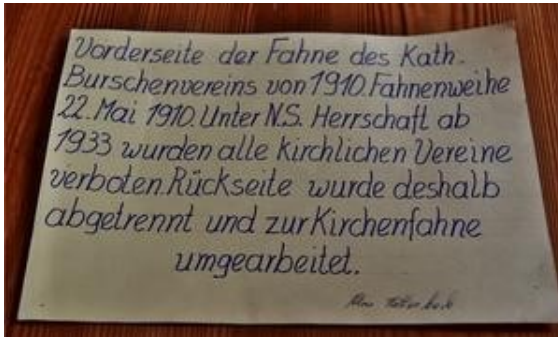 Vorderseite der Fahne des Kath.
Burschenvereins von 1910. Fahnenweihe
22. Mai 1910. Unter N.S. Herrschaft ab
1933 wurden alle kirchlichen Vereine
verboten. Rückseite wurde deshalb
abgetrennt und zur Kirchenfahne
umgearbeitet.